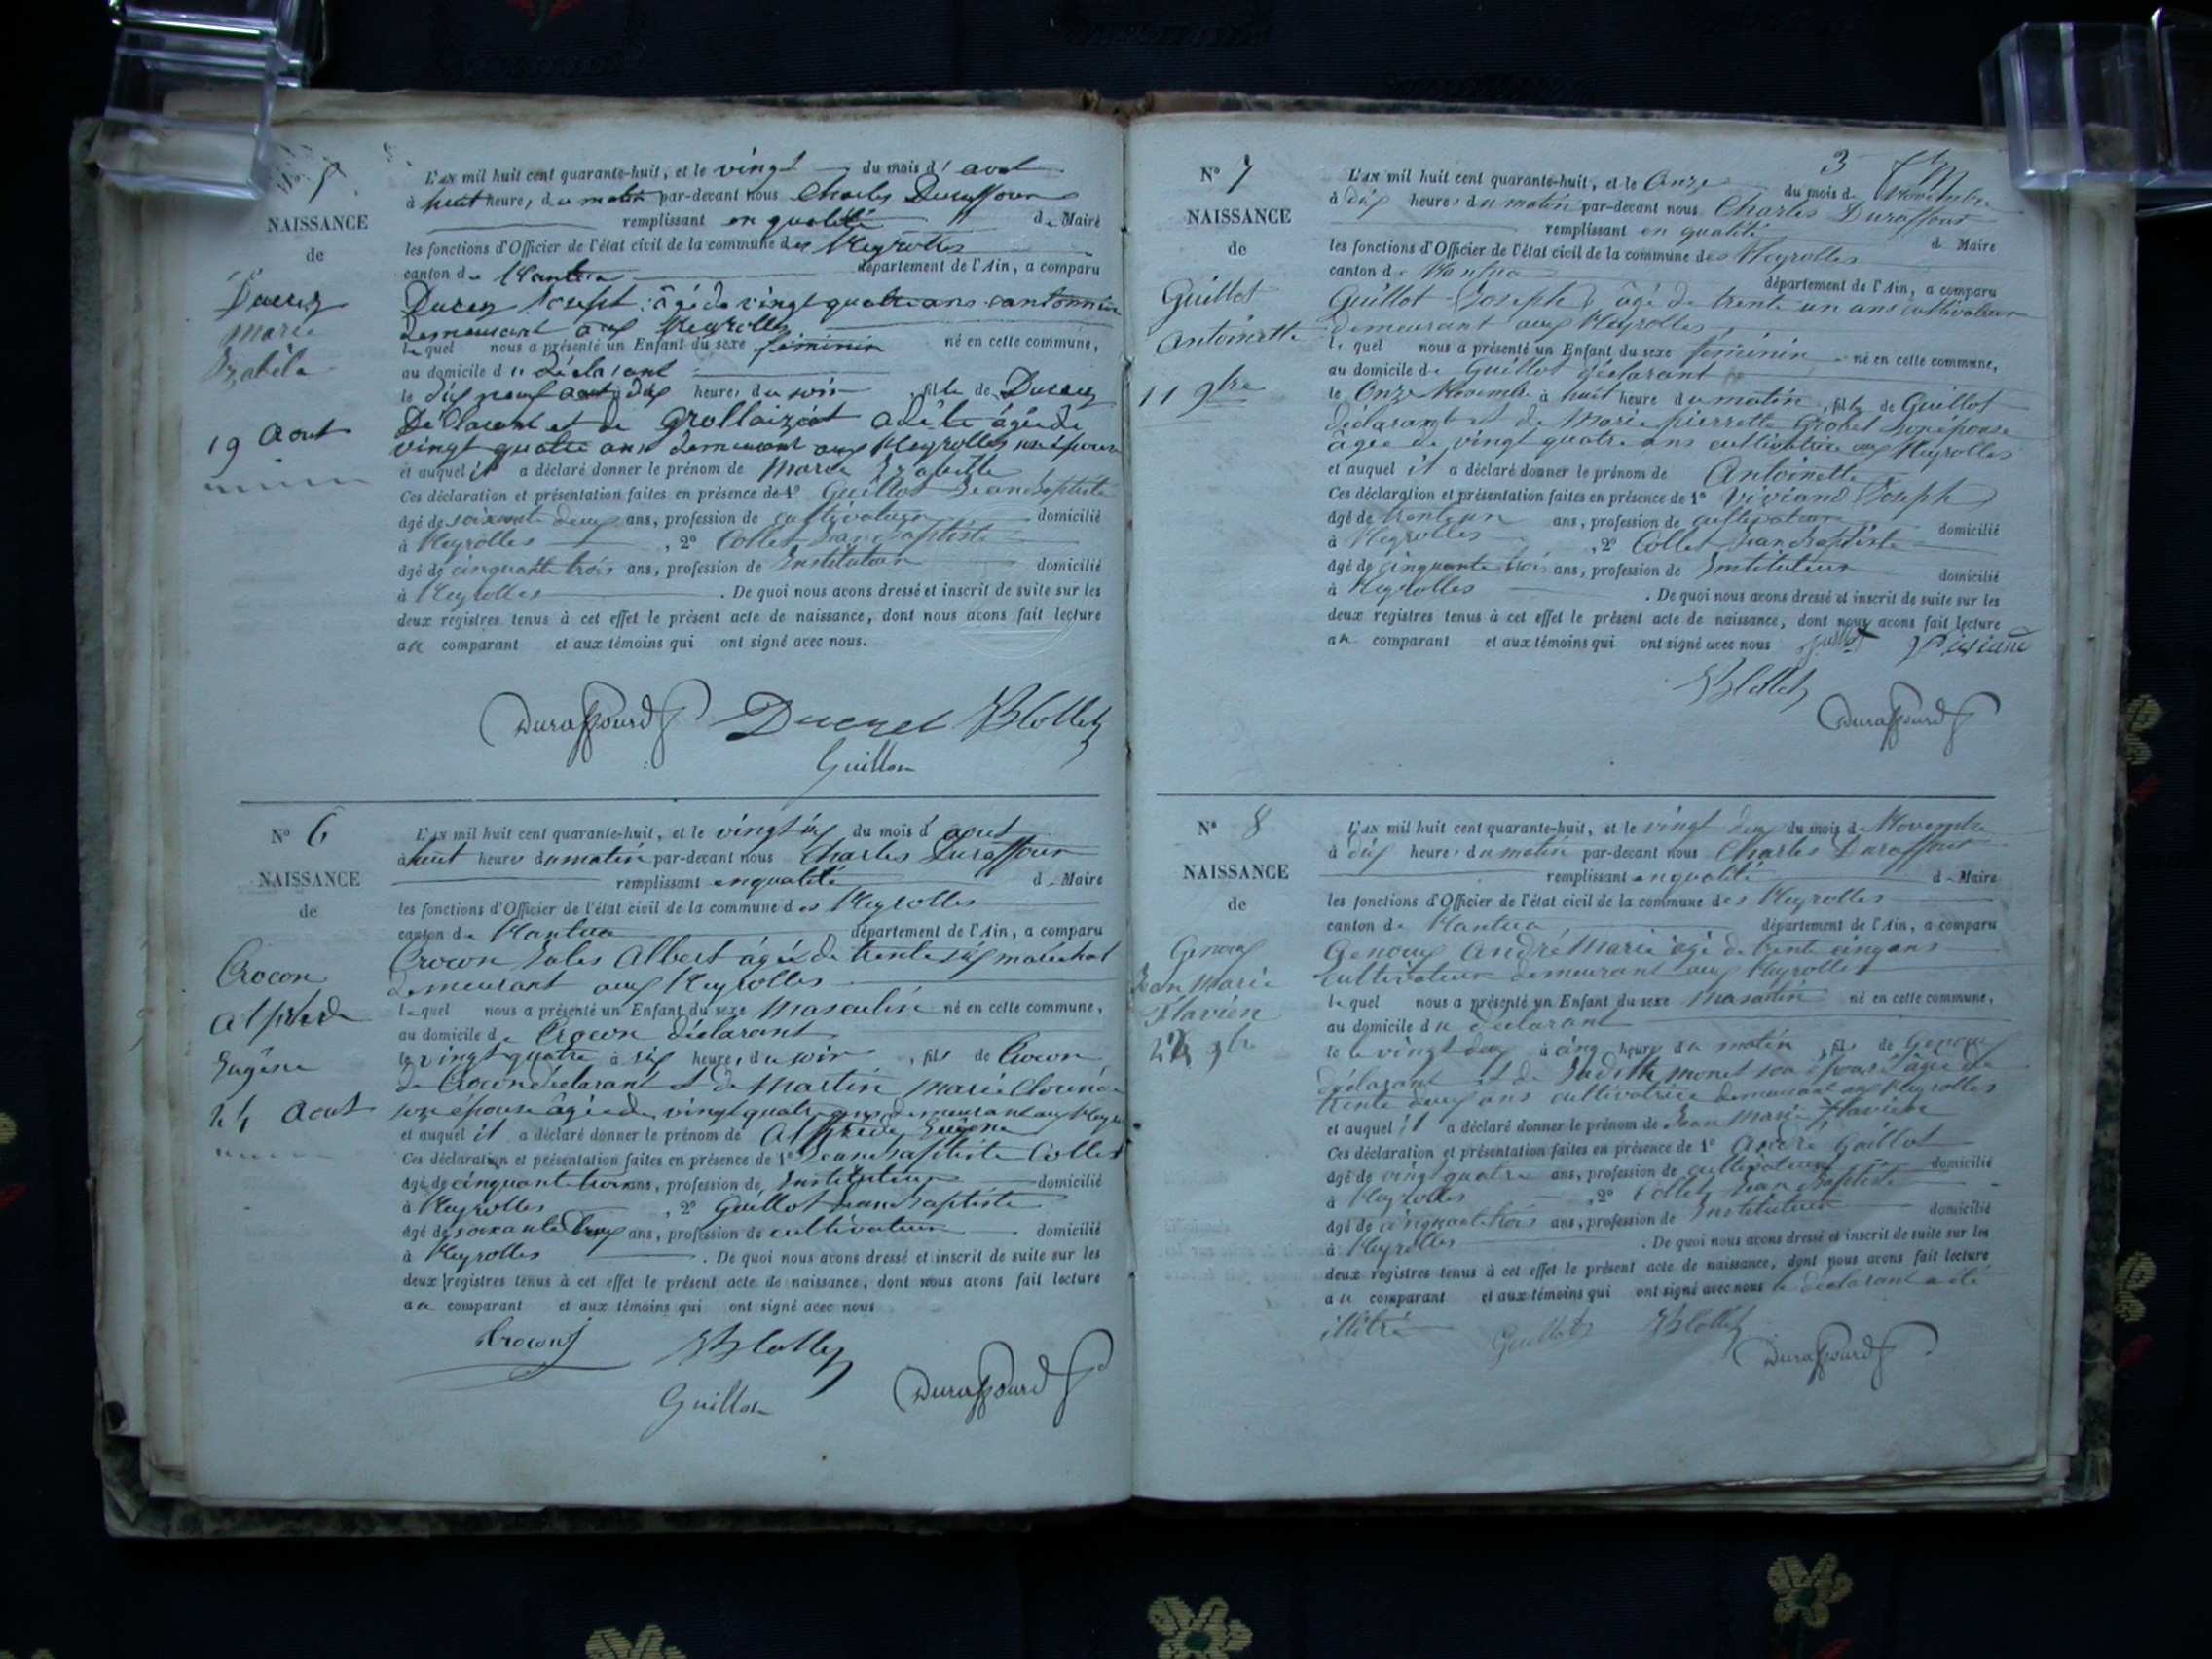 N° 5
NAISSANCE
de
Ducrey
Marie
Izabéla
19 Aout
L'AN mil huit cent quarante-huit, et le vingt du mois d'aout
à huit heures du matin par-devant nous Charles Duraffour
remplissant en qualité de Maire
les fonctions d'Officier de l'état civil de la commune des Neyrolles
canton de Nantua département de l'Ain, a comparu
Ducrey Joseph âgé de vingt quatre ans cantonnier
demeurant aux Neyrolles
lequel nous a présenté un Enfant du sexe féminin né en cette commune,
au domicile du déclarant
le dix neuf aout à dix heures du soir, fille de Ducrey
Déclarant et de Adèle âgée de
vingt quatre ans demeurant aux Neyrolles son épouse
et auquel il a déclaré donner le prénom de Marie Izabelle
Ces déclaration et présentation faites en présence de 1° Guillot Jean Baptiste
âgé de soixante deux ans, profession de cultivateur domicilié
à Neyrolles, 2° Collet Jean Baptiste
âgé de cinquante trois ans, profession de Instituteur domicilié
à Neyrolles. De quoi nous avons dressé et inscrit de suite sur les
deux registres tenus à cet effet le présent acte de naissance, dont nous avons fait lecture
au comparant et aux témoins qui ont signé avec nous.
Duraffourd Ducret JB Collet
Guillot
N° 6
NAISSANCE
de
Crocon
Alfrède
Eugène
24 Aout
L'AN mil huit cent quarante-huit, et le vingt six du mois d'aout
à huit heures du matin par-devant nous Charles Duraffour
remplissant en qualité de Maire
les fonctions d'Officier de l'état civil de la commune des Neyrolles
canton de Nantua département de l'Ain, a comparu
Crocon Jules Albert âgé de trente six maréchal
demeurant aux Neyrolles
lequel nous a présenté un Enfant du sexe Masculin né en cette commune,
au domicile de Crocon déclarant
le vingt quatre à six heures du soir, fils de Crocon
de Crocon déclarant et de Martin Marie
son épouse âgée de vingt quatre ans demeurant aux
et auquel il a déclaré donner le prénom de Alfrède Eugène
Ces déclaration et présentation faites en présence de 1° Jean Baptiste Collet
âgé de cinquante trois ans, profession de Instituteur domicilié
à Neyrolles, 2° Guillot Jean Baptiste
âgé de soixante deux ans, profession de cultivateur domicilié
à Neyrolles. De quoi nous avons dressé et inscrit de suite sur les
deux registres tenus à cet effet le présent acte de naissance, dont nous avons fait lecture
au comparant et aux témoins qui ont signé avec nous
Crocon JB Collet
Guillot Duraffourd
3
N° 7
NAISSANCE
de
Guillot
Antoinette
11 9bre
L'AN mil huit cent quarante-huit, et le Onze du mois de Novembre
à dix heures du matin par-devant nous Charles Duraffour
remplissant en qualité de Maire
les fonctions d'Officier de l'état civil de la commune des Neyrolles
canton de Nantua département de l'Ain, a comparu
Guillot Joseph âgé de trente un ans cultivateur
demeurant aux Neyrolles
lequel nous a présenté un Enfant du sexe féminin né en cette commune,
au domicile de Guillot déclarant
le Onze Novembre à huit heure du matin, fille de Guillot
déclarant et de Marie pierrette son épouse
âgée de vingt quatre ans cultivatrice aux Neyrolles
et auquel il a déclaré donner le prénom de Antoinette
Ces déclaration et présentation faites en présence de 1° Viviand Joseph
âgé de trente un ans, profession de cultivateur domicilié
à Neyrolles, 2° Collet Jean Baptiste
âgé de cinquante trois ans, profession de Instituteur domicilié
à Neyrolles. De quoi nous avons dressé et inscrit de suite sur les
deux registres tenus à cet effet le présent acte de naissance, dont nous avons fait lecture
au comparant et aux témoins qui ont signé avec nous Guillot Viviand
JB Collet
Duraffourd
N° 8
NAISSANCE
de
Genoux
Jean Marie
Flavien
22 9bre
L'AN mil huit cent quarante-huit, et le vingt deux du mois de Novembre
à dix heures du matin par-devant nous Charles Duraffour
remplissant en qualité de Maire
les fonctions d'Officier de l'état civil de la commune des Neyrolles
canton de Nantua département de l'Ain, a comparu
Genoux André Marie âgé de trente cinq ans
Cultivateur demeurant aux Neyrolles
lequel nous a présenté un Enfant du sexe Masculin né en cette commune,
au domicile du déclarant
le le vingt deux à cinq heures du matin, fils de Genoux
déclarant et de Judith monet son épouse âgée de
trente deux ans cultivatrice demeurant aux Neyrolles
et auquel il a déclaré donner le prénom de Jean Marie Flavien
Ces déclaration et présentation faites en présence de 1° André Guillot
âgé de vingt quatre ans, profession de cultivateur domicilié
à Neyrolles, 2° Collet Jean Baptiste
âgé de cinquante trois ans, profession de Instituteur domicilié
à Neyrolles. De quoi nous avons dressé et inscrit de suite sur les
deux registres tenus à cet effet le présent acte de naissance, dont nous avons fait lecture
au comparant et aux témoins qui ont signé avec nous le déclarant a été
illétré Guillot JB Collet
Duraffourd